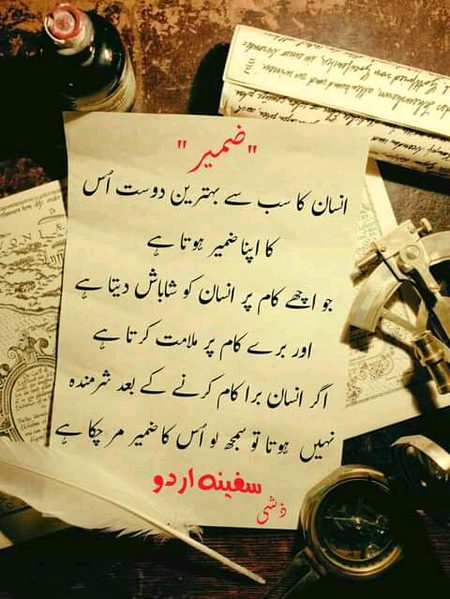 "ضمیر"
انسان کا سب سے بہترین دوست اُس
کا اپنا ضمیر ہوتا ہے
جو اچھے کام پر انسان کو شاباش دیتا ہے
اور برے کام پر ملامت کرتا ہے
اگر انسان برا کام کرنے کے بعد شرمندہ
نہیں ہوتا تو سمجھ لو اُس کا ضمیر مر چکا ہے
سفینہ اردو
ذشی